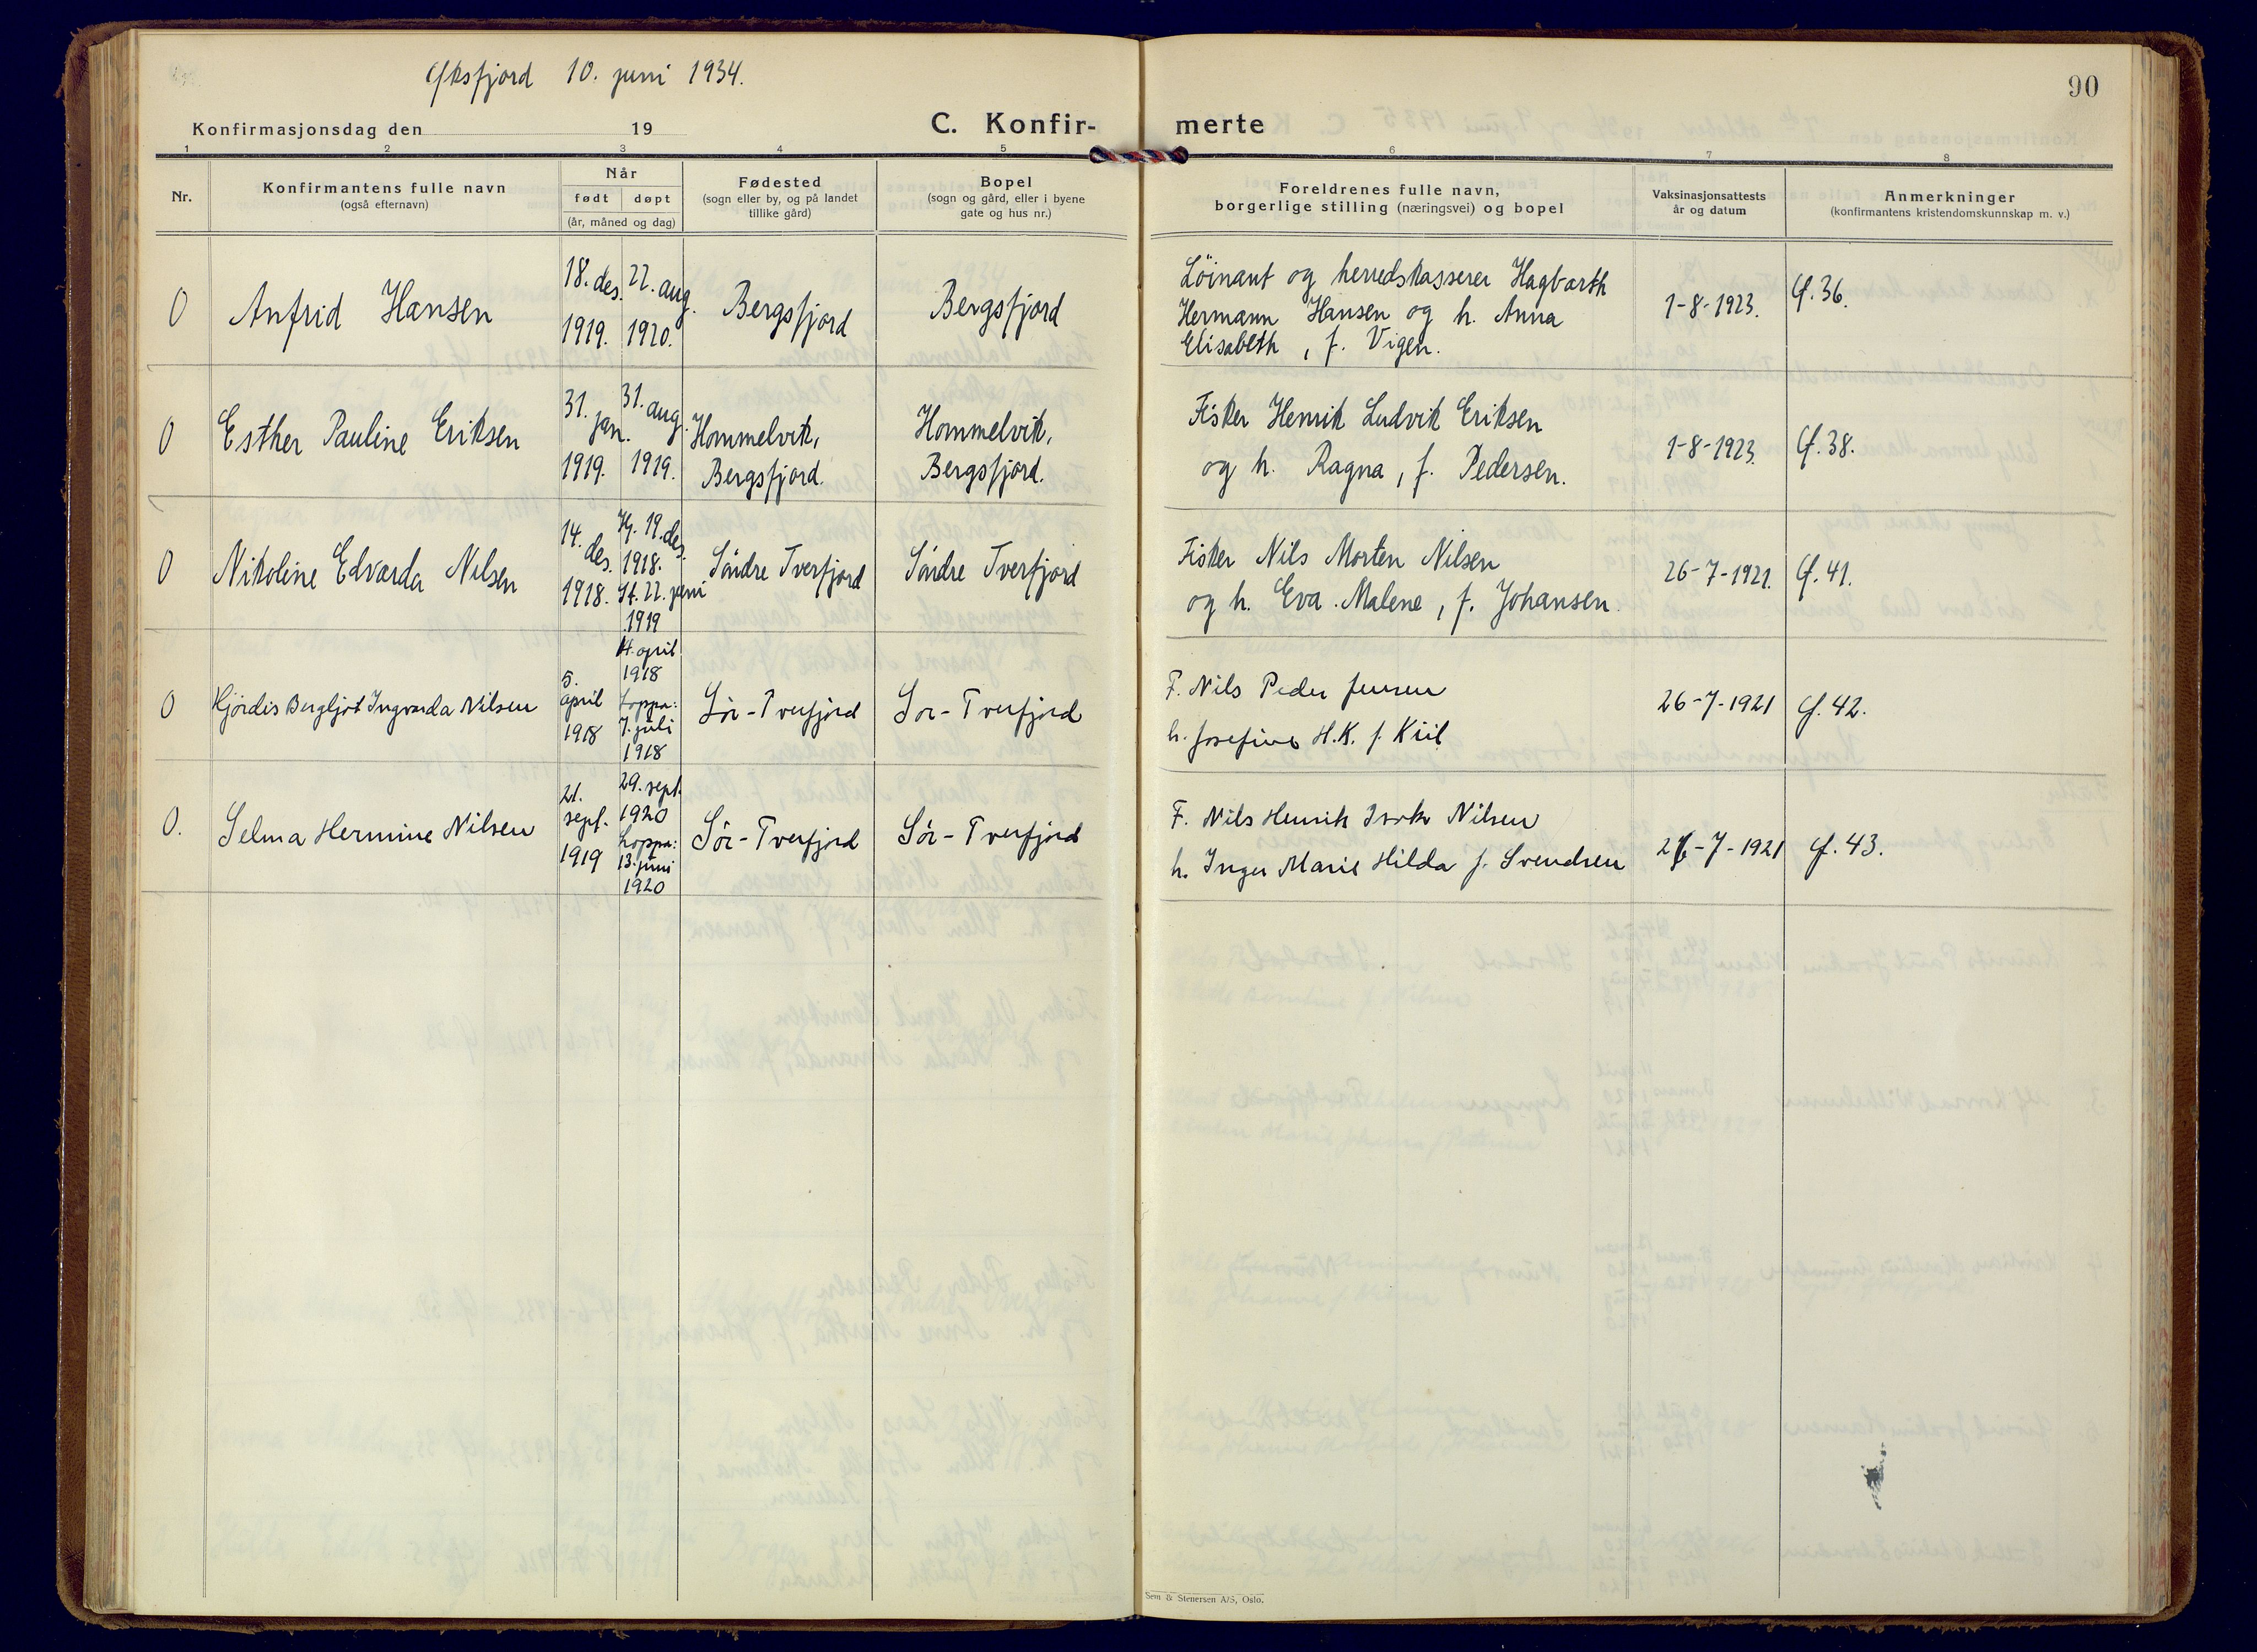 Øksfjord 10. juni 1934.
90
Konfirmasjonsdag den 19
C. Konfir-
merte
1 2 3 4 5 6 7 8
Nr.
Konfirmantens fulle navn
(også efternavn)
Når
født døpt
(år, måned og dag)
Fødested
(sogn eller by, og på landet
tillike gård)
Bopel
(sogn og gård, eller i byene
gate og hus nr.)
Foreldrenes fulle navn,
borgerlige stilling (næringsvei) og bopel
Vaksinasjonsattests
år og datum
Anmerkninger
(konfirmantens kristendomskunnskap m. v.)
0
Anfrid Hansen
18. des.
1919.
22. aug.
1920.
Bergsfjord
Bergsfjord
Löinant og herredskasserer Hagbarth
Hermann Hansen og h. Anna
Elisabeth, f. Vigen.
1-8-1923.
Cf. 36.
0
Esther Pauline Eriksen
31.
jan.
1919.
31. aug.
1919.
Hommelvik,
Bergsfjord.
Hommelvik,
Bergsfjord.
Fisker Henrik Ludvik Eriksen
og h. Ragna, f. Pedersen.
1-8-1923.
Cf. 38.
0
Nikoline Edvarda Nilsen
14.
des.
1918.
Hj. 19. des.
1918.
St. 22. juni
1919
Söndre Tverfjord
Söndre Tverfjord
Fisker Nils Morten Nilsen
og h. Eva Malene, f. Johansen.
26-7-1921.
Cf. 41.
0
Hjördis Bergljot Ingvarda Nilsen
5.
april
1918
14. april
1918
Loppa:
7. juli
1918
Sör-Tverfjord
Sör-Tverfjord
F. Nils Peder Jensen
h. Josefine H.K. f. Kiil
26-7-1921
Cf. 42.
0.
Selma Hermine Nilsen
21.
sept.
1919
29. sept.
1920
Loppa:
13. juni
1920
Sör-Tverfjord
Sör-Tverfjord
F. Nils Henrik Nilsen
h. Inger Marie Hilda f. Svendsen
26-7-1921
Cf. 43.
Sem & Stenersen A/S, Oslo.